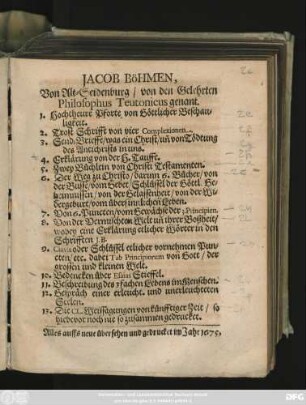 JACOB BöHMEN,
Von Alt-Seidenburg / von den Gelehrten
Philosophus Teutonicus genant.
1. Hochtheure Pforte von Göttlicher Beschau-
ligkeit.
2. Trost Schrifft von vier Complexionen.
3. Send-Brieff / was ein Christ / un von Tödtung
des Antichrists in uns.
4. Erklärung von der H. Tauffe.
5. Zwey Büchlein von Christi Testamenten.
6. Der Weg zu Christo / darinn 6. Bücher / von
der Busse / vom Gebet Schlüssel der Göttl. Ge-
heimnissen / von der Gelassenheit / von der Wi-
dergeburt / vom übersinnlichen Leben.
7. Von 6. Puncten / vom Gewächse der 3 Principien.
8. Von der Vermischten Welt un ihrer Bosheit /
wobey eine Erklärung etlicher Wörter in den
Schrifften J. B.
9. Clavis oder Schlüssel etlicher vornehmen Pun-
cten / etc. dabey Tab Principiorum von Gott / der
grossen und kleinen Welt.
10. Bedencken über Esaiæ Stieffel.
11. Beschreibung des 3 fachen Lebens im Menschen.
12. Gespräch einer erleucht. und unerleuchteten
Seelen.
13. Die CL. Weissagungen von künfftiger Zeit / so
hiebevor noch nie so zusammen gedrucket.
Alles auffs neue übersehen und gedrucket im Jahr 1675.